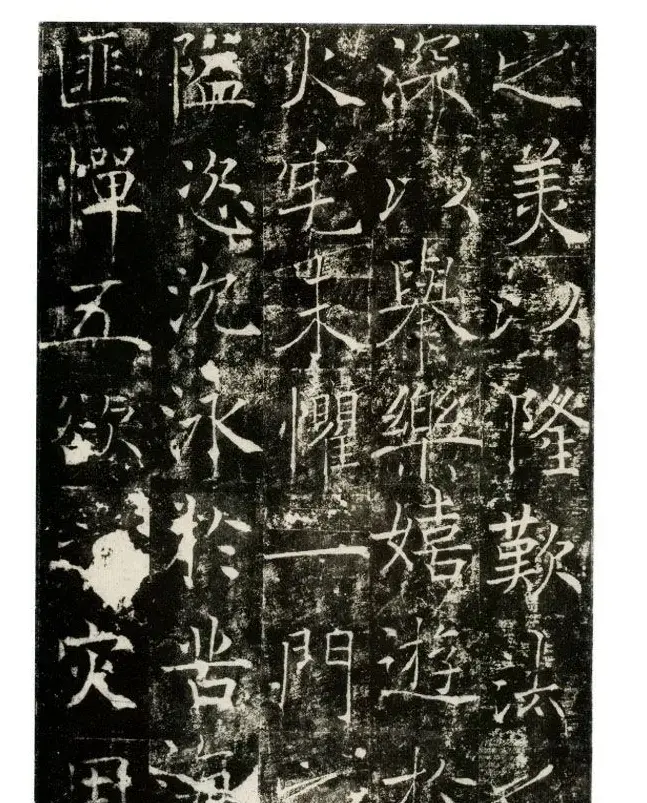 之美以隆歎法
深以舉樂嬉遊於
火宅未懼一門之
隘恣沉泳於苦海
匪憚五欲灾